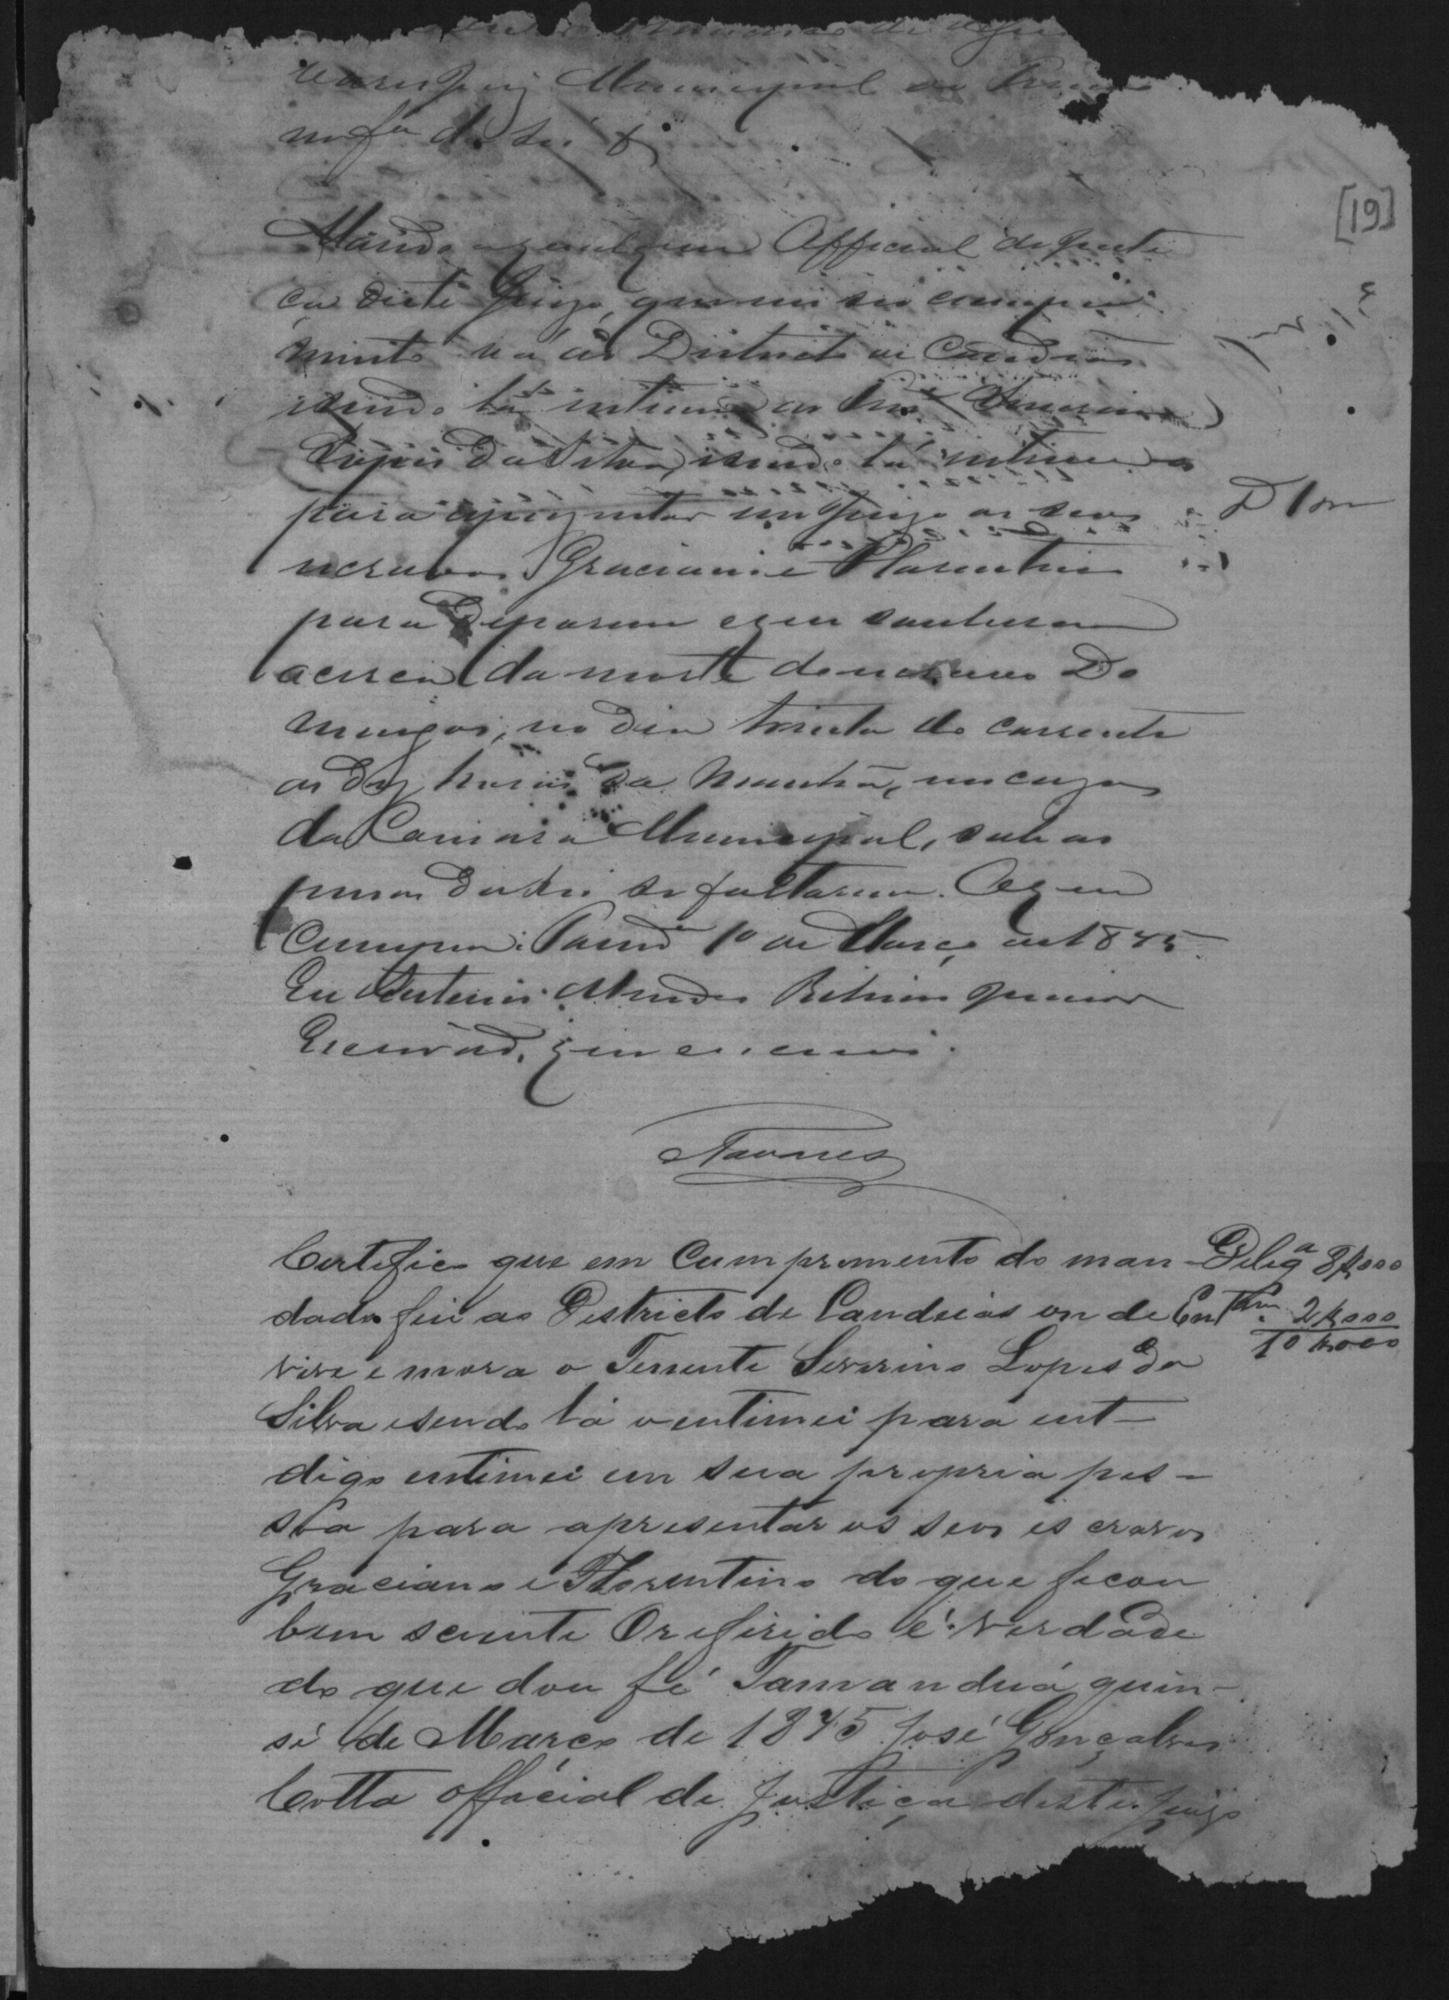 Municipal
na f.a da Lei &
[19]
Mando a qualquer Official de justi
ca deste Juizo, que em seu compri
mento vá ao Districto de Candeias
sendo lá intime ao
Lopes da Silva, sendo lá intime
para aprezentar em Juizo os seus
D 1000
escravos Graciano e Florentino
para deporem o que souberem
acerca da morte de Do
mingos, no dia trinta do corrente
as dez horas da manhã, na caza
da Camara Municipal, sub as
penas da Lei se faltarem. O que
Cumpra. Tamd.a 1º de Março de 1845
Eu Antonio Mendes Ribeiro Junior
Escrivão, que escrevi.
Tavares
Certifico que em Cumpromento do man-
Delig.a 8$000
dado fui ao Destricto de Candeias on de
Cert.am 2$000
10$000
vive e mora o Tenente Severino Lopes da
Silva e sendo lá o entimei para ent-
digo entimei em sua propria pes-
soa para apresentar os seos escravos
Graciano e Florentino do que ficou
bem sciente O referido é verdade
do que dou fé Tamanduá quin-
se de Marco de 1845 José Gonçalves
Cotta official de Justiça deste Juizo